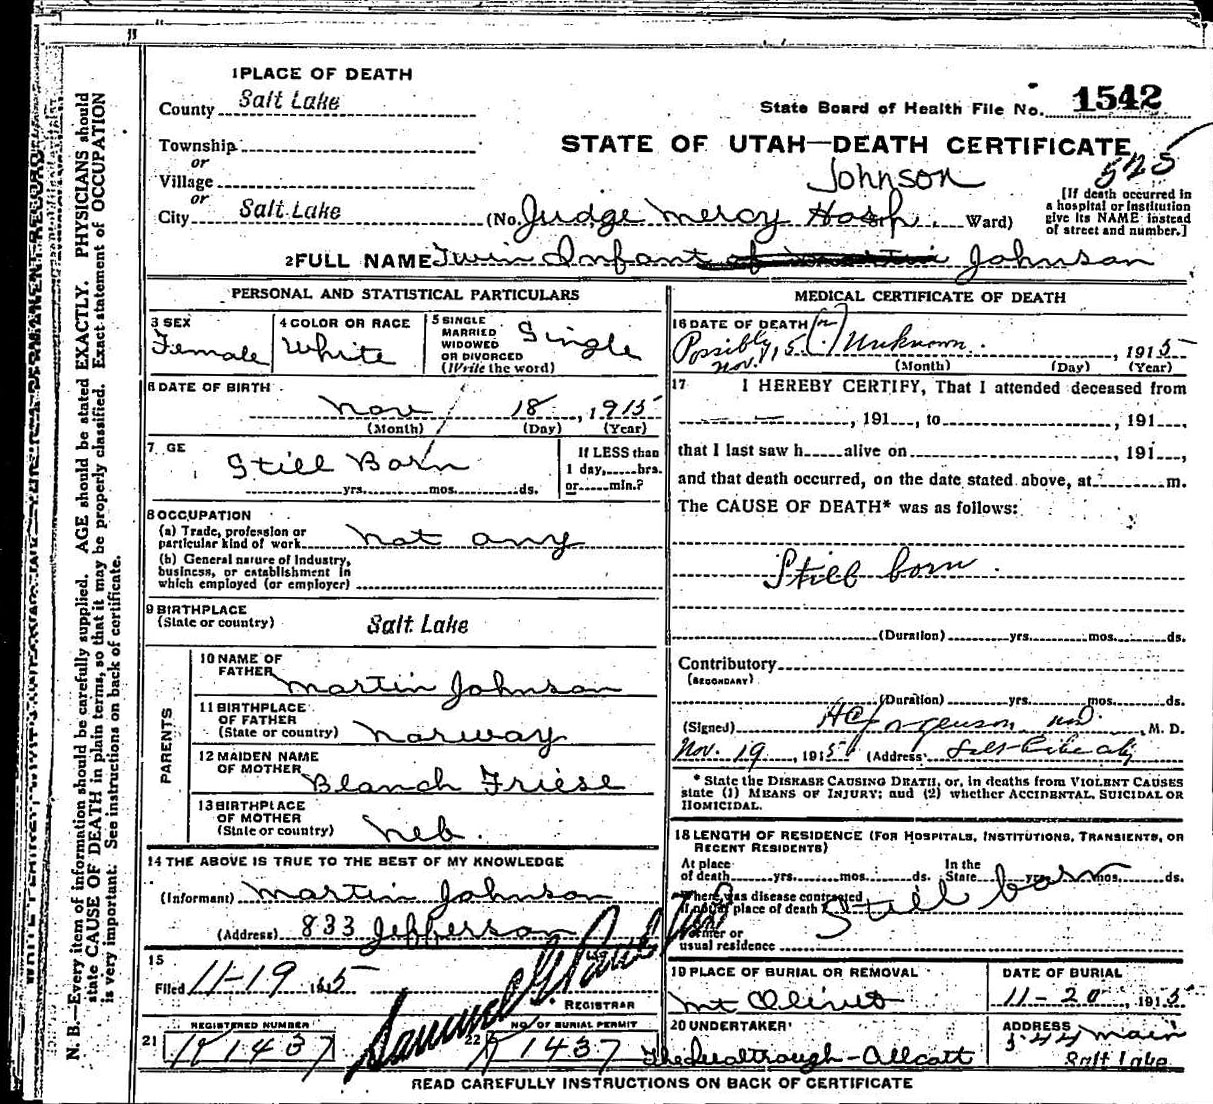 1 PLACE OF DEATH
County Salt Lake
State Board of Health File No. 1542
Township
or
Village
or
City Salt Lake
STATE OF UTAH—DEATH CERTIFICATE
525
Johnson
(No. Judge Mercy Hosp. Ward)
[If death occurred in
a hospital or institution
give its NAME instead
of street and number.]
2 FULL NAME Twin Infant of Martin Johnson
PERSONAL AND STATISTICAL PARTICULARS
3 SEX
Female
4 COLOR OR RACE
White
5 SINGLE
MARRIED
WIDOWED
OR DIVORCED
(Write the word)
Single
6 DATE OF BIRTH
Nov 18, 1915
(Month) (Day) (Year)
7 GE
Still Born
yrs. mos. ds.
If LESS than
1 day, hrs.
or min.?
8 OCCUPATION
(a) Trade, profession or
particular kind of work not any
(b) General nature of industry,
business, or establishment in
which employed (or employer)
9 BIRTHPLACE
(State or country) Salt Lake
PARENTS
10 NAME OF
FATHER Martin Johnson
11 BIRTHPLACE
OF FATHER
(State or country) Norway
12 MAIDEN NAME
OF MOTHER Blanch Friese
13 BIRTHPLACE
OF MOTHER
(State or country) Neb.
14 THE ABOVE IS TRUE TO THE BEST OF MY KNOWLEDGE
(Informant) Martin Johnson
(Address) 833 Jefferson
15
Filed 11-19 1915
Samuel G. Paul
REGISTRAR
21 REGISTERED NUMBER
1437
22 NO. OF BURIAL PERMIT
1437
MEDICAL CERTIFICATE OF DEATH
16 DATE OF DEATH
Possibly Nov. 15 (?) Unknown. , 1915
(Month) (Day) (Year)
17 I HEREBY CERTIFY, That I attended deceased from
, 191 , to , 191 ,
that I last saw h alive on , 191 ,
and that death occurred, on the date stated above, at m.
The CAUSE OF DEATH* was as follows:
Still born.
(Duration) yrs. mos. ds.
Contributory
(SECONDARY)
(Duration) yrs. mos. ds.
(Signed) M.D. M. D.
Nov. 19, 1915 (Address)
* State the DISEASE CAUSING DEATH, or, in deaths from VIOLENT CAUSES
state (1) MEANS OF INJURY; and (2) whether ACCIDENTAL, SUICIDAL OR
HOMICIDAL.
18 LENGTH OF RESIDENCE (FOR HOSPITALS, INSTITUTIONS, TRANSIENTS, OR
RECENT RESIDENTS)
At place
of death yrs. mos. ds.
In the
State yrs. mos. ds.
Where was disease contracted
if not at place of death?
Still born
Former or
usual residence
19 PLACE OF BURIAL OR REMOVAL
Mt Olivet
DATE OF BURIAL
11-20, 1915
20 UNDERTAKER
ADDRESS
Main
Salt Lake
READ CAREFULLY INSTRUCTIONS ON BACK OF CERTIFICATE
N. B.—Every item of information should be carefully supplied. AGE should be stated EXACTLY. PHYSICIANS should
state CAUSE OF DEATH in plain terms, so that it may be properly classified. Exact statement of OCCUPATION
is very important. See instructions on back of certificate.